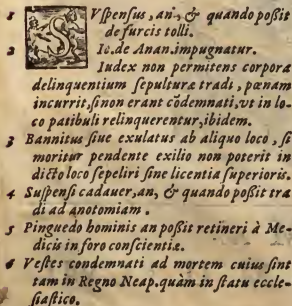 1 SVspensus, an, & quando possit
de furcis tolli.
2 Io. de Anan. impugnatur.
Iudex non permitens corpora
delinquentium sepulturæ tradi, pœnam
incurrit, sinon erant cōdemnati, vt in lo-
co patibuli relinquerentur, ibidem.
3 Bannitus siue exulatus ab aliquo loco, si
moritur pendente exilio non poterit in
dicto loco sepeliri sine licentia superioris.
4 Suspensi cadauer, an, & quando possit tra
di ad anotomiam.
5 Pinguedo hominis an possit retineri à Me-
dicis in foro conscientiæ.
6 Vestes condemnati ad mortem cuius sint
tam in Regno Neap. quàm in statu eccle-
siastico.